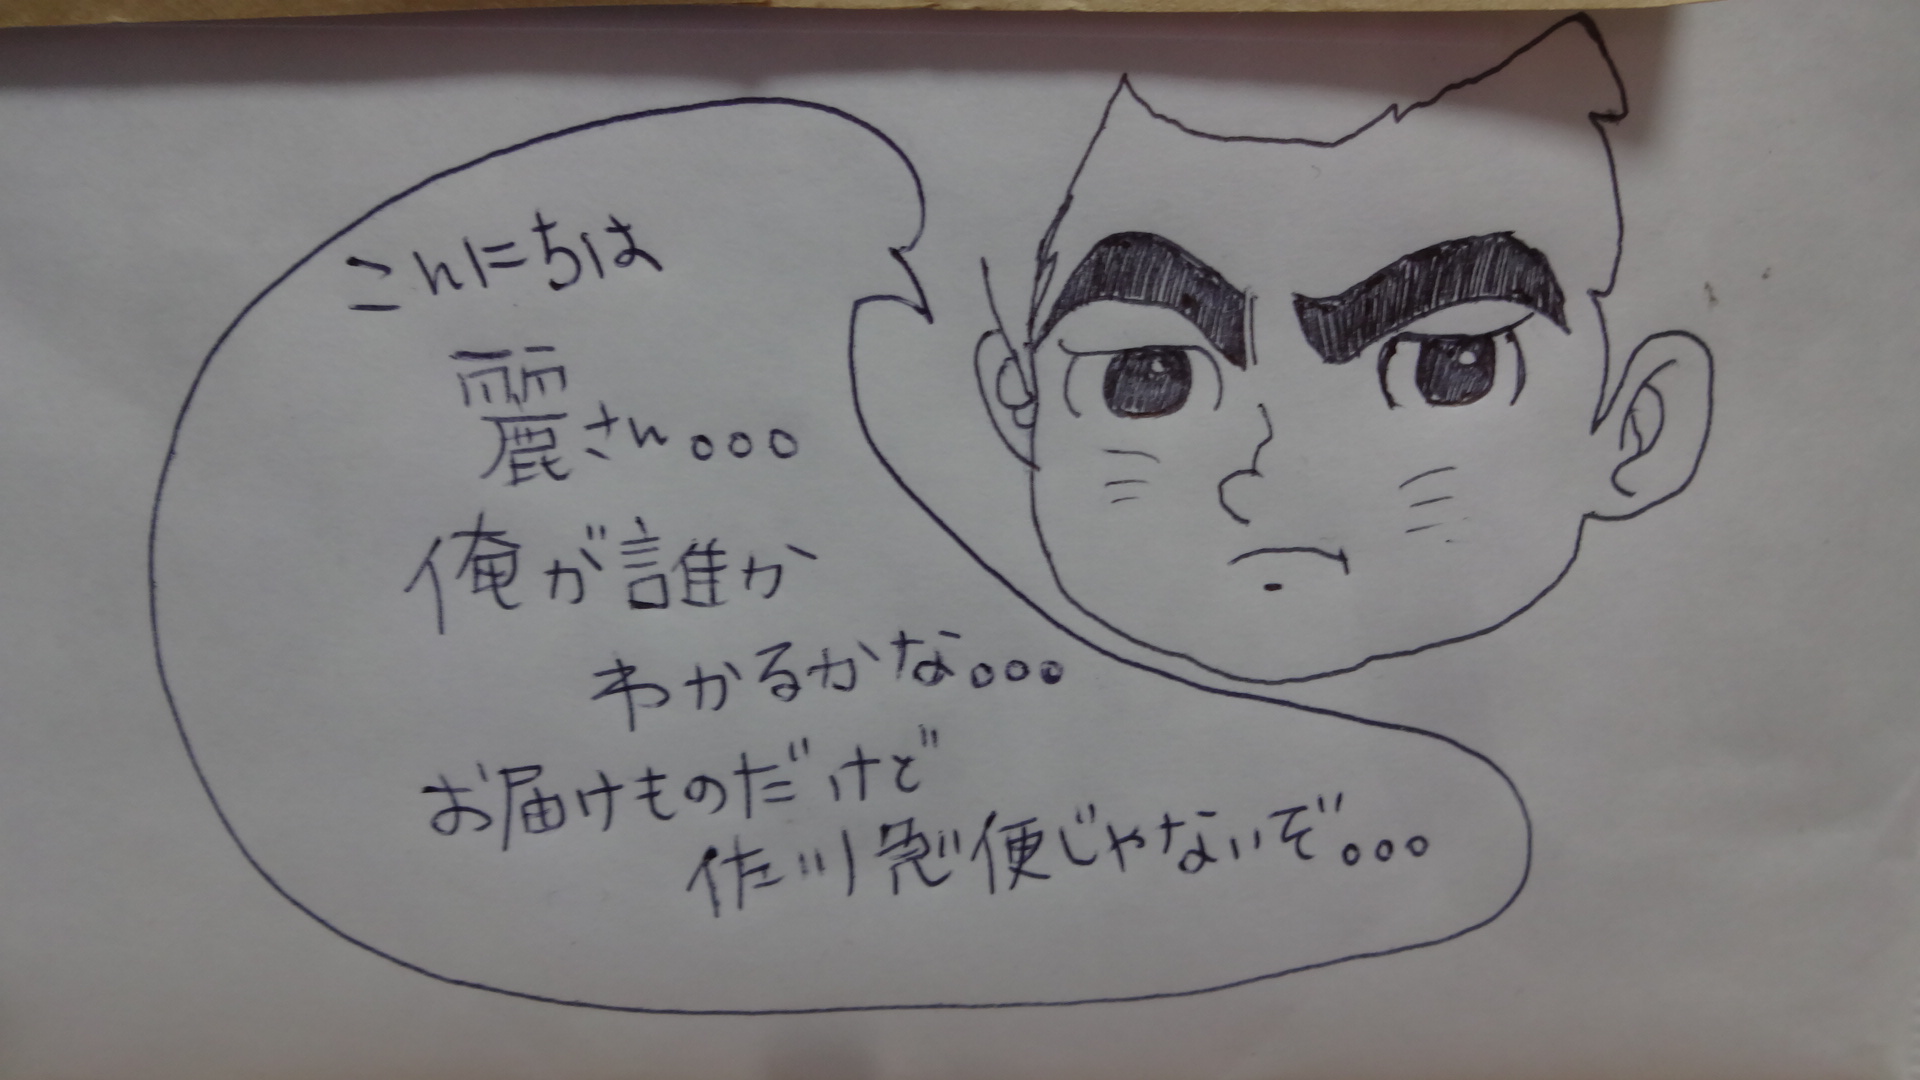 こんにちは
麗さん。。。
俺が誰か
わかるかな。。。
お届けものだけど
佐川急便じゃないぞ。。。